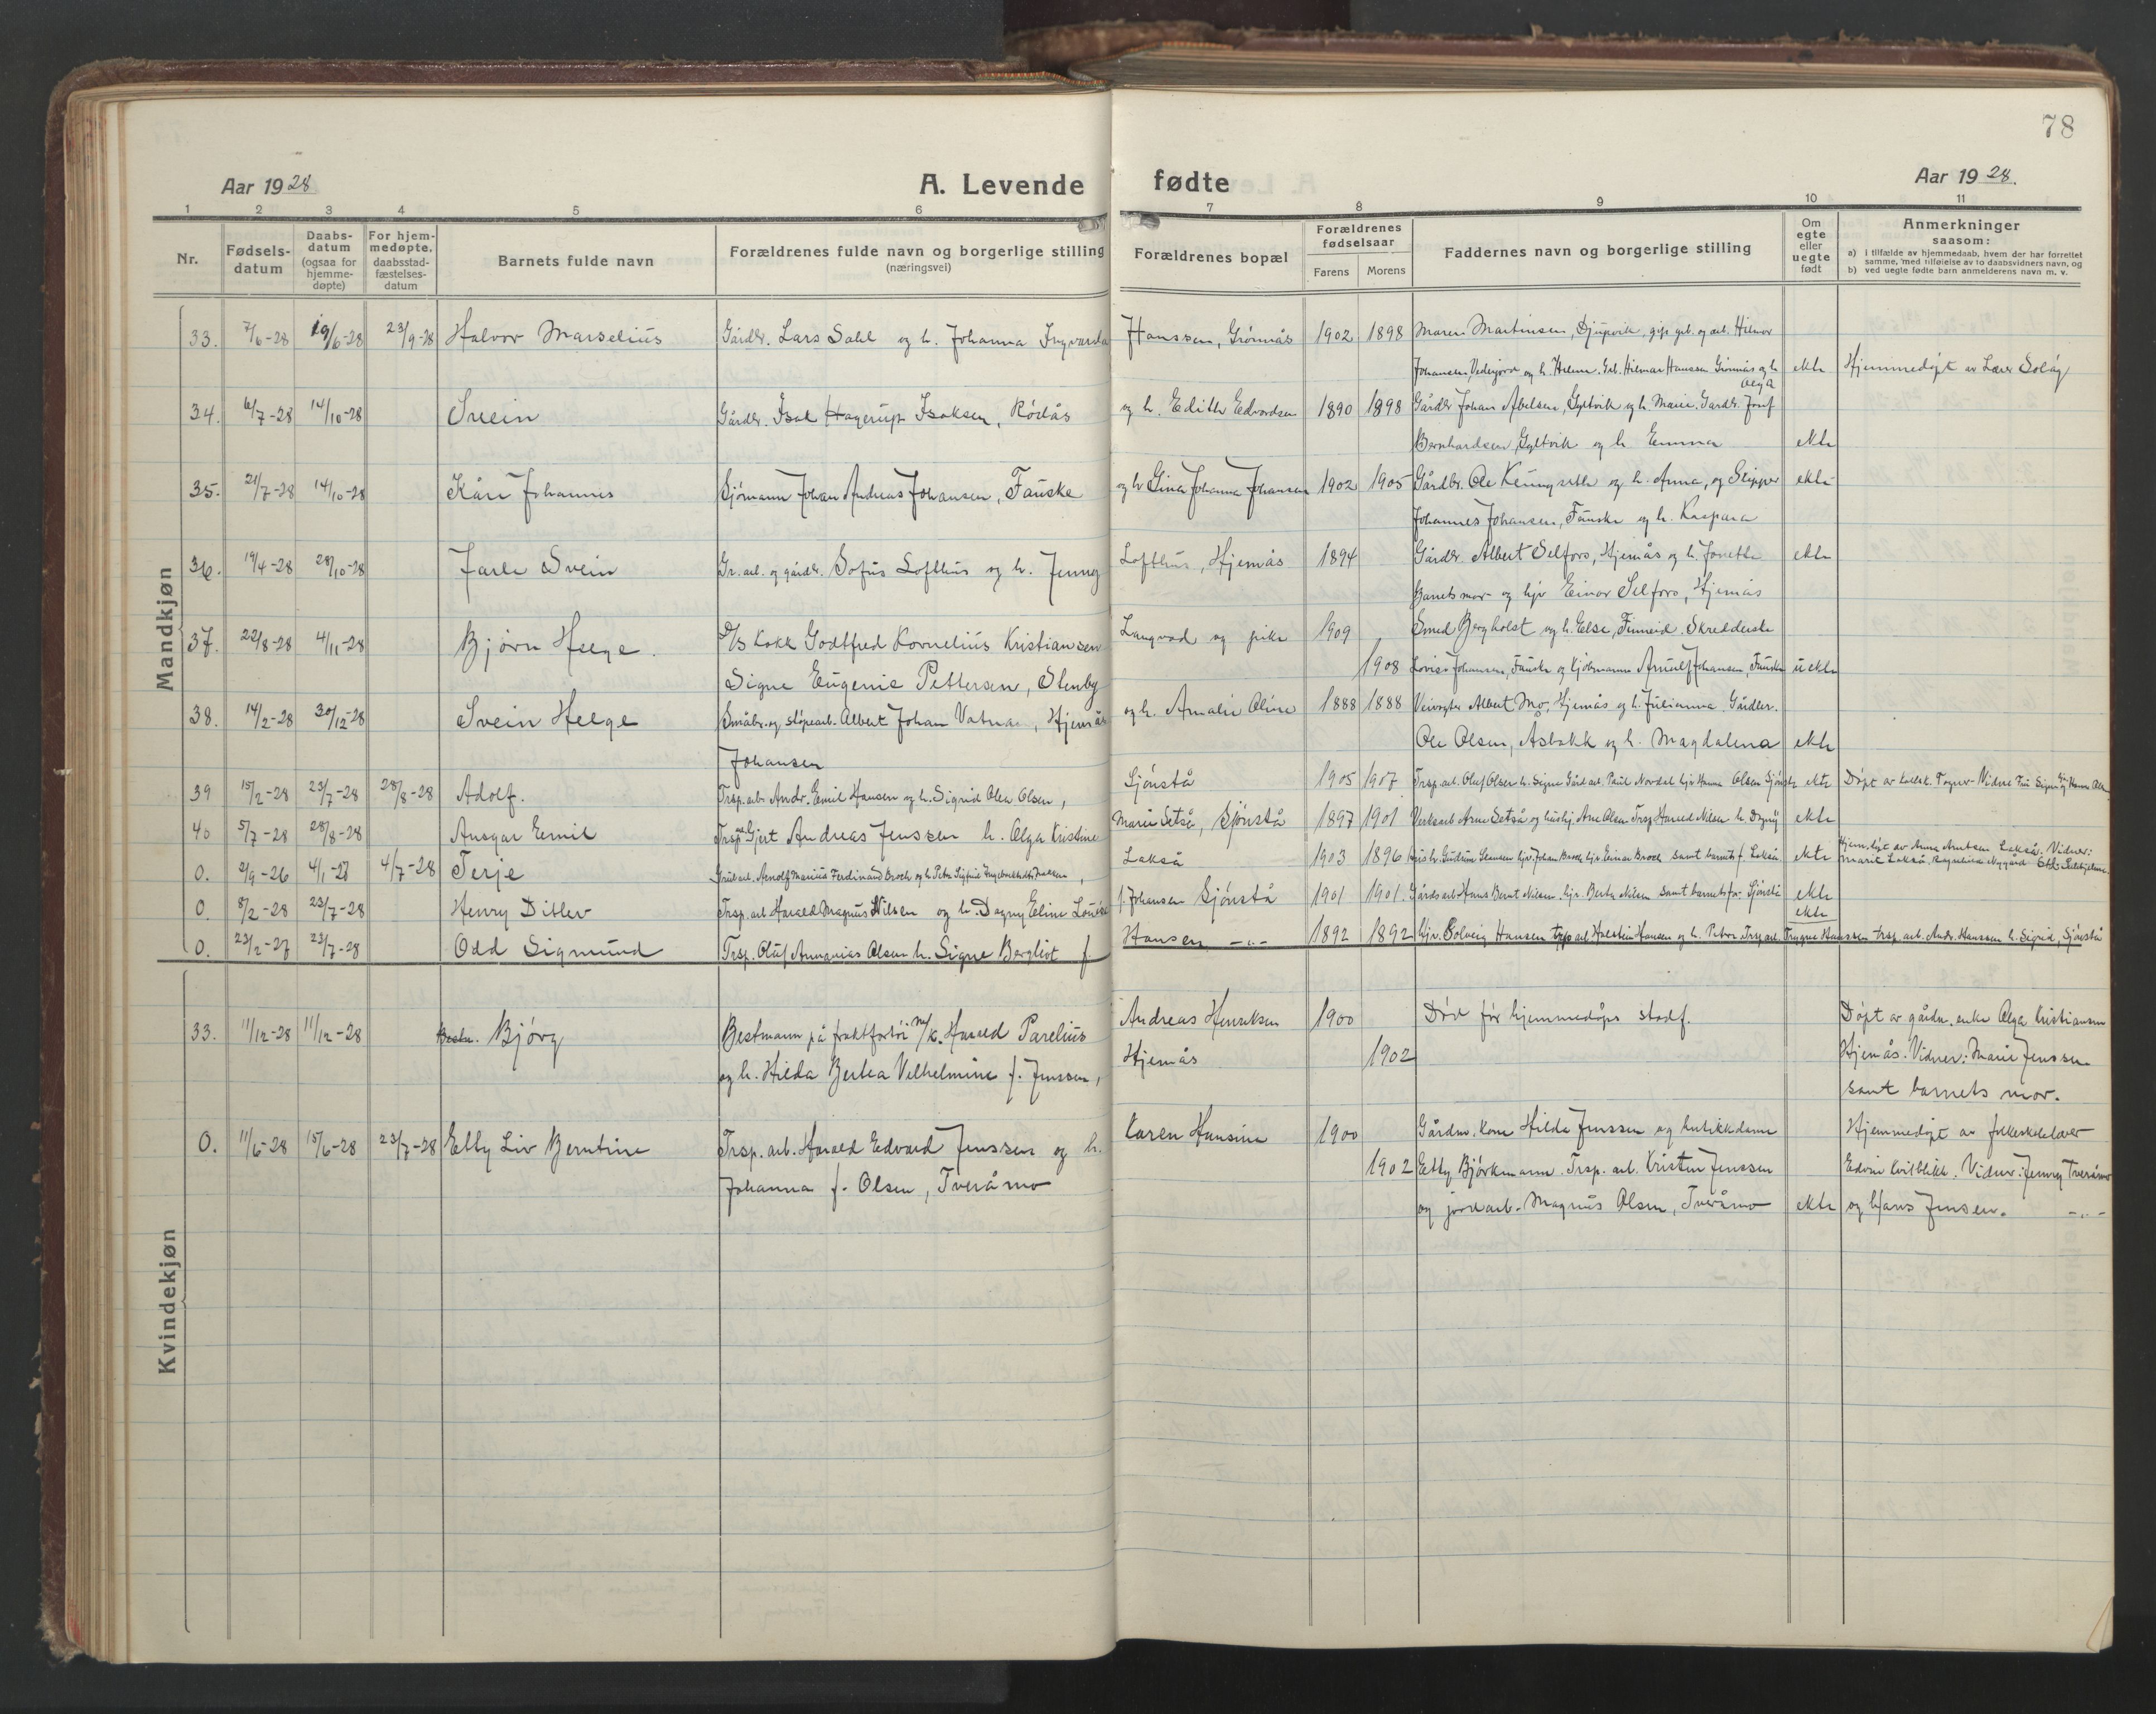 78
Aar 1928
A. Levende fødte
Aar 1928.
1 2 3 4 5 6 7 8 9 10 11
Nr.
Fødsels-
datum
Daabs-
datum
(ogsaa for
hjemme-
døpte)
For hjem-
medøpte.
daabsstad-
fæstelses-
datum
Barnets fulde navn
Forældrenes fulde navn og borgerlige stilling
(næringsvei)
Forældrenes bopæl
Forældrenes
fødselsaar
Farens Morens
Faddernes navn og borgerlige stilling
Om
egte
eller
uegte
født
Anmerkninger
saasom:
a) i tilfælde av hjemmedaab, hvem der har forrettet
samme, med tilføielse av to daabsvidners navn, og
b) ved uegte fødte barn anmelderens navn m. v.
Mandkjøn
33. 7/6-28 19/6-28 23/9-28 Halvor Marselius Gårdbr. Lars Dahl og h. Johanna Ingvarda Hanssen, Grønnås 1902 1898 Maren Martinsen, Djupvik, og arb. Hilmar
Johansen, og h. Helene. Hilmar Hanssen Grønnås og h. Olga ekte Hjemmedøpt av Lærer Solåg
34. 6/7-28 14/10-28 Svein Gårdbr. Isak Hagerup Isaksen, Rødås og h. Edith Edvardsen 1890 1898 Gårdbr Johan Abelsen, Gyltvik og h. Marie. Gårdbr. Josef
Bernhardsen, Gyltvik og h Emma ekte
35. 21/7-28 14/10-28 Kåre Johannes Sjømann Johan Andreas Johansen, Fauske og h Gina Johanna Johansen 1902 1905 Gårdbr. Ole og h. Anna, og Skipper ekte
Johannes Johansen, Fauske og h. Kaspara
36. 19/4-28 28/10-28 Jarle Svein Gr. arb. og gårdbr. Sofus Lofthus og h. Jenny Lofthus, Hjemås 1894 Gårdbr. Albert Selfors, Hjemås og h. Jonette ekte
Barnets mor og hjv Einar Selfors, Hjemås
37. 22/8-28 4/11-28 Bjørn Helge. D/S Kokk Godtfred Kornelius Kristiansen Langvad og pike 1909 Smed Bergholst og h. Else, Finneid. Skredderske
Signe Eugenie Pettersen, Stenby 1908 Lovise Johansen, Fauske og Kjøbmann Arnulf Johansen, Fauske uekte
38. 14/2-28 30/12-28 Svein Helge Småbr. og støperarb. Albert Johan Vatna, Hjemås og h. Amalie Oline 1888 1888 Veivogter Albert Mo, Hjemås og h. Julianna. Gårdbr.
Johansen Ole Olsen, Asbakk og h. Magdalena ekte
39 15/2-28 23/7-28 28/8-28 Adolf. Trsp. arb. Andr. Emil Hansen og h. Sigrid Olea Olsen, Sjønstå 1905 1907 Trsp. arb. Olaf Olsen h. Signe Gård arb. Paul Nordal hjv Hanna Olsen Sjønstå ekte Døpt av Vidner Fru Signe og Hanna Olsen
40 5/7-28 28/8-28 Ansgar Emil Trsp arb Gjert Andreas Jenssen h. Olga Kristine Marie Setså, Sjønstå 1897 1901 Verksarb Arne Setså og Arne Olsen Trsp Harald Nilsen h. Dagny ekte
0. 2/9-26 4/1-28 4/7-28 Terje Grubearb. Arnolf Marius Ferdinand Broch og h. Petra Sigfrid Lakså 1903 1896 hjv. Johan Broch hjv. Einar Broch samt barnets f. Lakså ekte Hjem. døpt av Anna Arntsen Lakså. Vidner:
Marie Lakså,
0. 8/2-28 23/7-28 Henry Ditlev Trsp. arb Harald Magnus Nilsen og h. Dagny Eline Louise f. Johansen Sjønstå 1901 1901. Gårdsarb Hans Bernt Nilsen. hjv. Berta Nilsen samt barnets for. Sjønstå ekte
0. 23/2-27 23/7-28 Odd Sigmund Trsp. Olaf Annanias Olsen h. Signe Bergliot f. Hansen -"- 1892 1892 hjv. Solveig Hansen trsp arb Halstein Hansen og h. Petra Trsp arb. Trygve Hanssen trsp. arb. Andr. Hanssen h. Sigrid, Sjønstå ekte
Kvindekjøn
33. 11/12-28 11/12-28 Bjørg Bestmann på fraktfartøi M/K. Harald Parelius Andreas Henriksen 1900 Død før hjemmedåps stadf. Døpt av gårdm. enke Olga Kristiansen
og h. Hilda Berta Vilhelmine f. Jenssen, Hjemås 1902 Hjemås. Vidner: Marie Jenssen
samt barnets mor.
0. 11/6-28 15/6-28 23/7-28 Etty Liv Berntine Trsp. arb. Harald Edvard Jenssen og h. Karen Hansine 1900 Gårdm. kone Hilda Jenssen og butikkdame Hjemmedøpt av folkeskolelærer
Johanna f. Olsen, Tveråmo 1902 Etty Bjørkmann. Trsp. arb. Kristen Jenssen Edvin Kvitblikk. Vidner: Jenny Tveråmo
og jordarb. Magnus Olsen, Tveråmo ekte og Hans Jensen. -"-